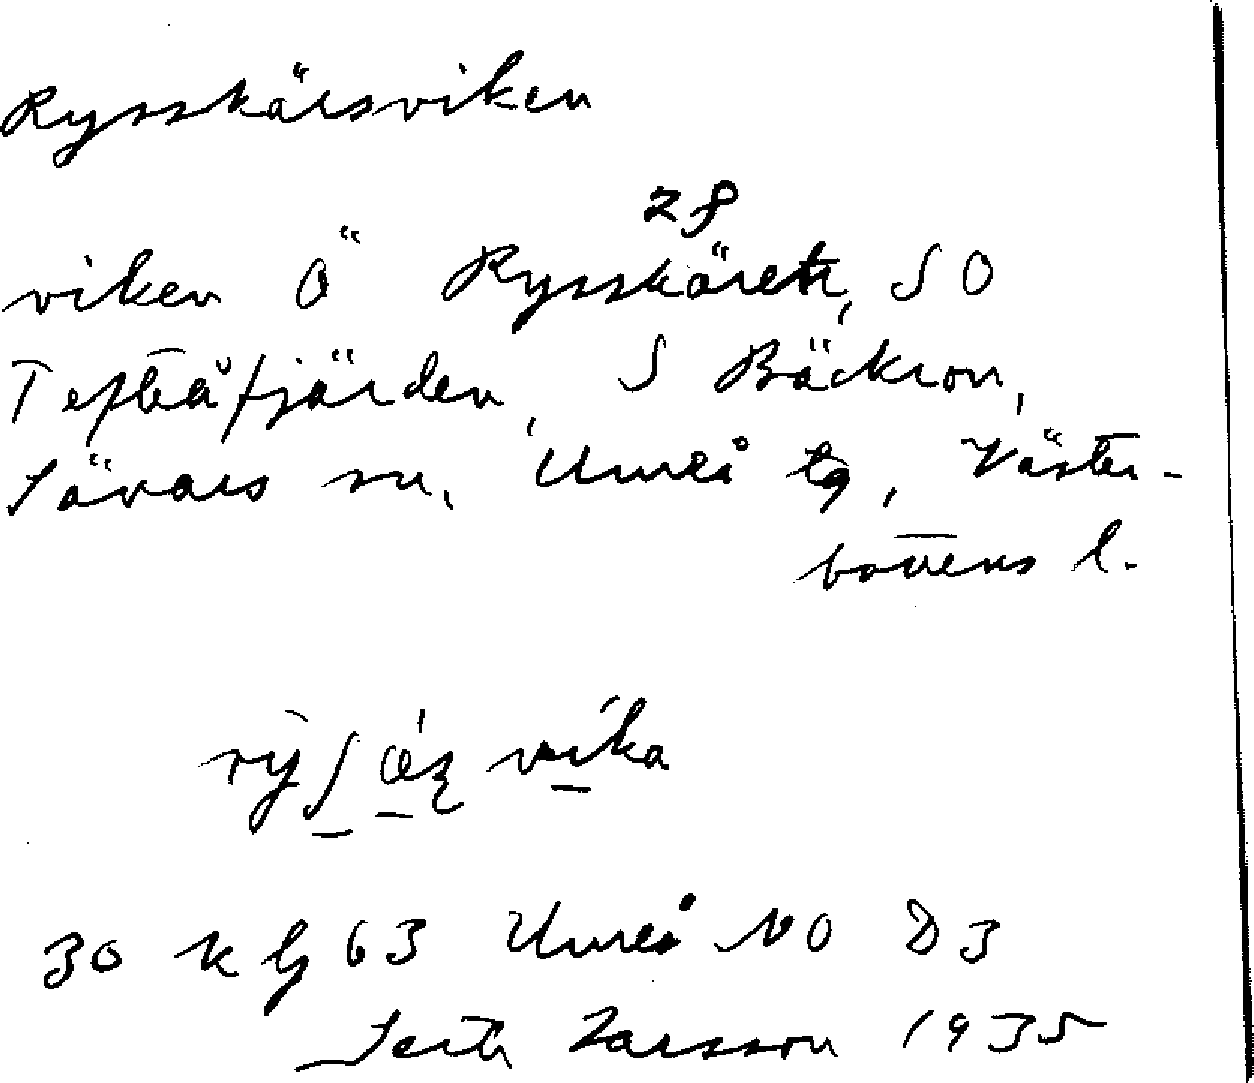 Rysskärsviken
28
viken Ö Rysskäret, SO
Tefteåfjärden, S Bäckron,
Sävars sn, Umeå tg, Väster-
bottens l.
vika
30 k G 63 Umeå NO D3
Seth Larsson 1935